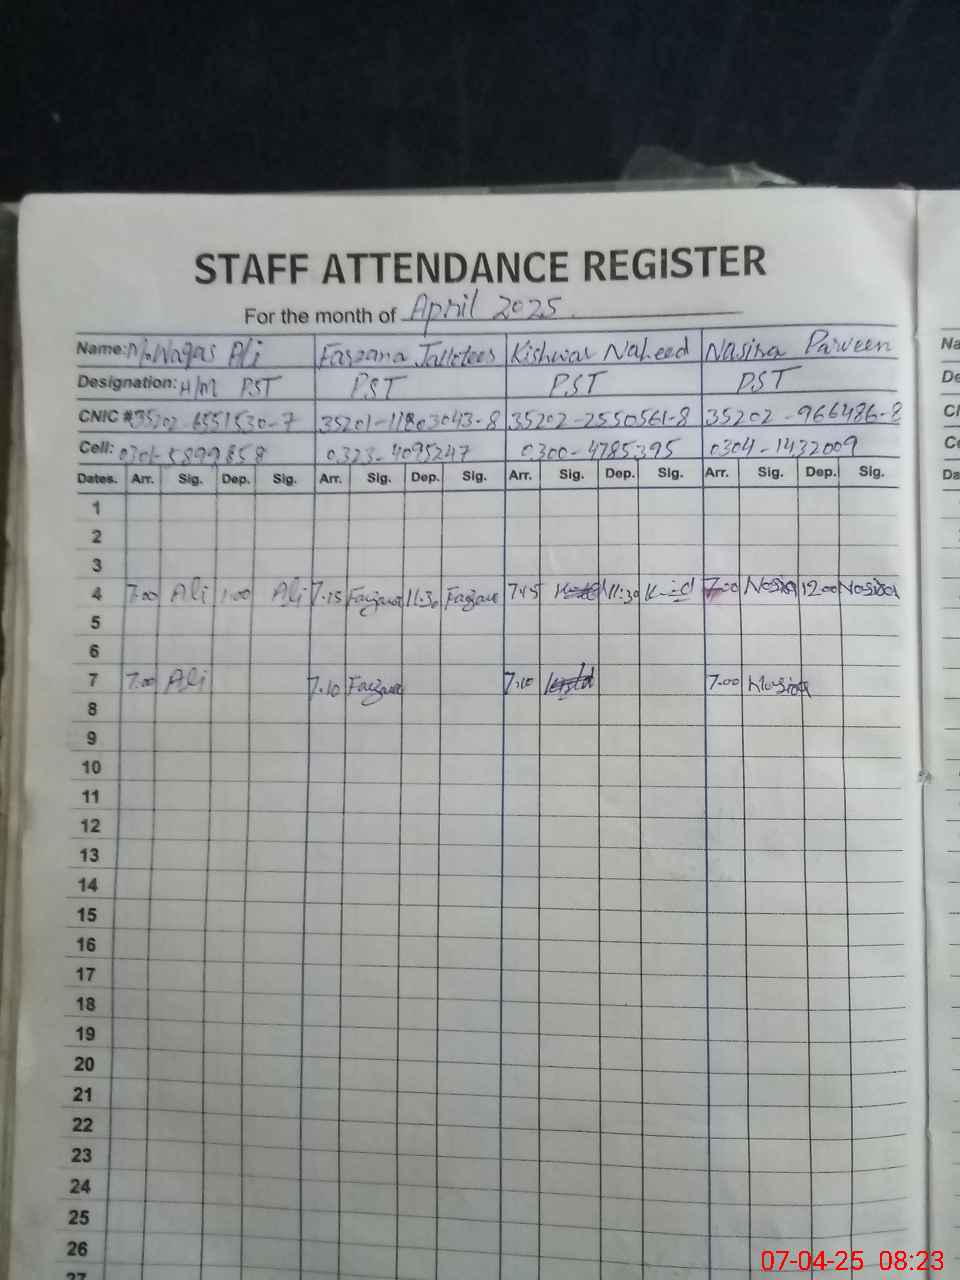 STAFF ATTENDANCE REGISTER
For the month of April 2025
Name: M. Waqas Ali Farzana Kishwar Naheed Nasira Parveen
Designation: H/M PST PST PST PST
CNIC # 35202-6551530-7 35201-11803043-8 35202-2550561-8 35202-966486-8
Cell: 0301-5899858 0323-4095247 0300-4785395 0304-1432009
Dates. Arr. Sig. Dep. Sig. Arr. Sig. Dep. Sig. Arr. Sig. Dep. Sig. Arr. Sig. Dep. Sig.
1
2
3
4 7.00 Ali 1.00 Ali 7.15 Farzana 11.30 Farzana 7.45 11.30 7.00 Nasira 12.00 Nasira
5
6
7 7.00 Ali 7.10 Farzana 7.10 7.00 Nasira
8
9
10
11
12
13
14
15
16
17
18
19
20
21
22
23
24
25
26
27
Na
De
Ce
Da
07-04-25 08:23